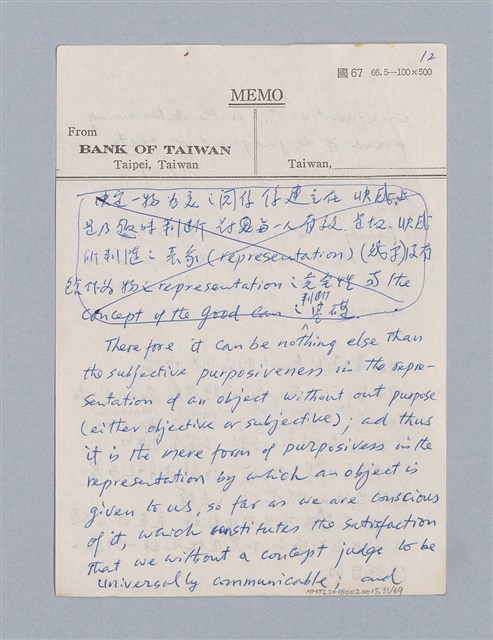 12
國 67 66.5—100×500
MEMO
From
BANK OF TAIWAN
Taipei, Taiwan
Taiwan,
決定一物为美之関係係建立在快感上
是乃趣味判断 对每一人有效 快感
所判造之表象 (representation) 没有
物之 representation 之完全性 the
判断
concept of the Good 之基礎
Therefore it can be nothing else than
the subjective purposiveness in the repre-
sentation of an object without out purpose
(either objective or subjective); ad thus
it is the mere form of purposivess in the
representation by which an object is
given to us, so far as we are conscious
of it, which constitutes the satisfaction
that we without a concept judge to be
universally communicable; and
NMTL20180020015.31/69